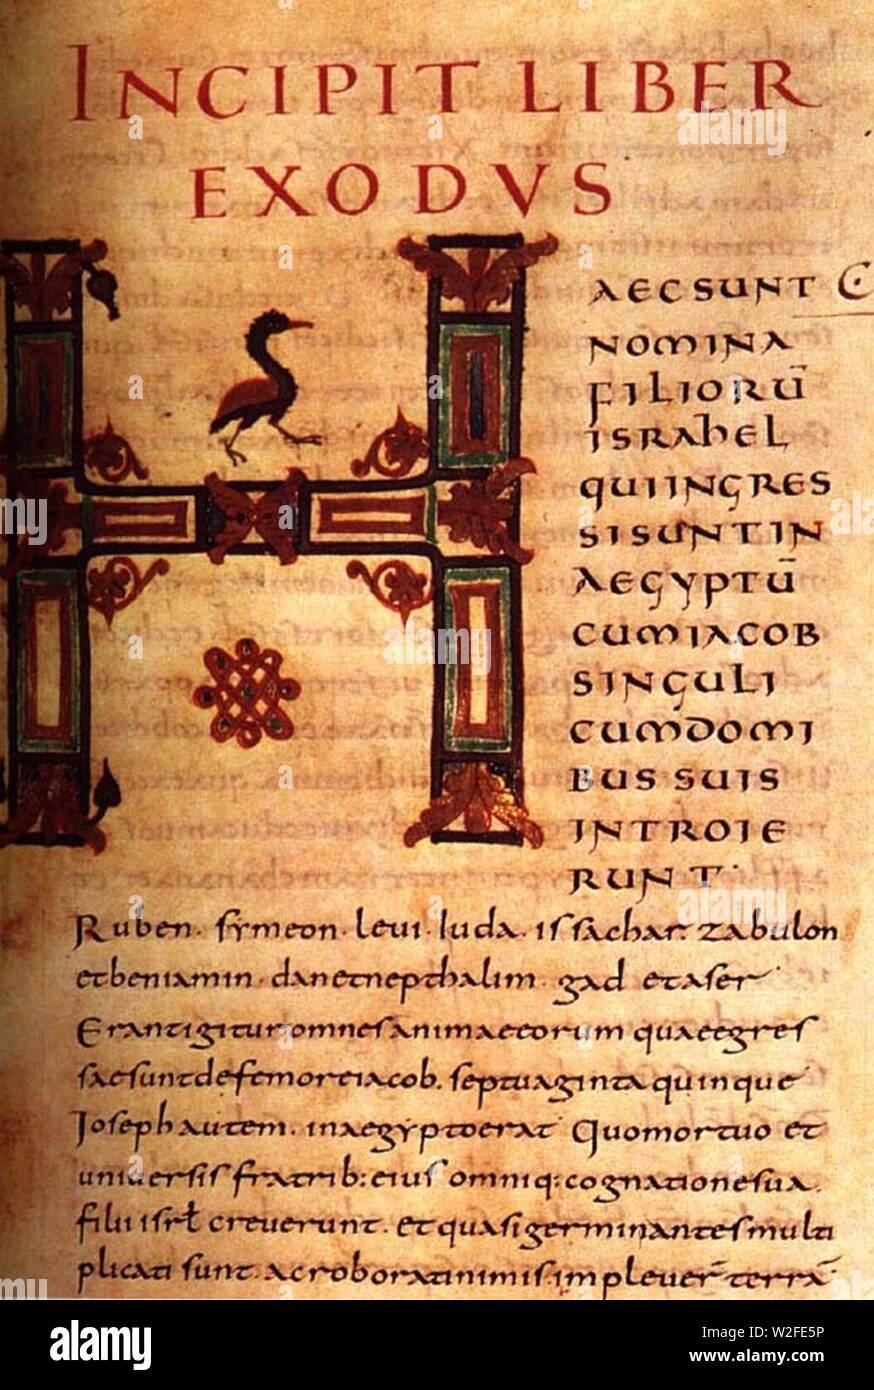 INCIPIT LIBER
EXODVS
AEC SUNT C
NOMINA
FILIORŪ
ISRAHEL
QUI INGRES
SI SUNT IN
AEGYPTŪ
CUM IACOB
SINGULI
CUM DOMI
BUS SUIS
INTROIE
RUNT·
Ruben· symeon· leui· Iuda· issachar· zabulon
et beniamin· dan et nepthalim· gad et aser
Erant igitur omnes animae eorum quae egres
sae sunt de femore iacob· septuaginta quinque
Ioseph autem· in aegypto erat Quo mortuo et
uniuersis fratrib: eius omniq: cognatione sua·
filii isrł creuerunt· et quasi germinantes multi
plicati sunt· ac roborati nimis· impleuer̄ terrā
alamy
Image ID: W2FE5P
www.alamy.com